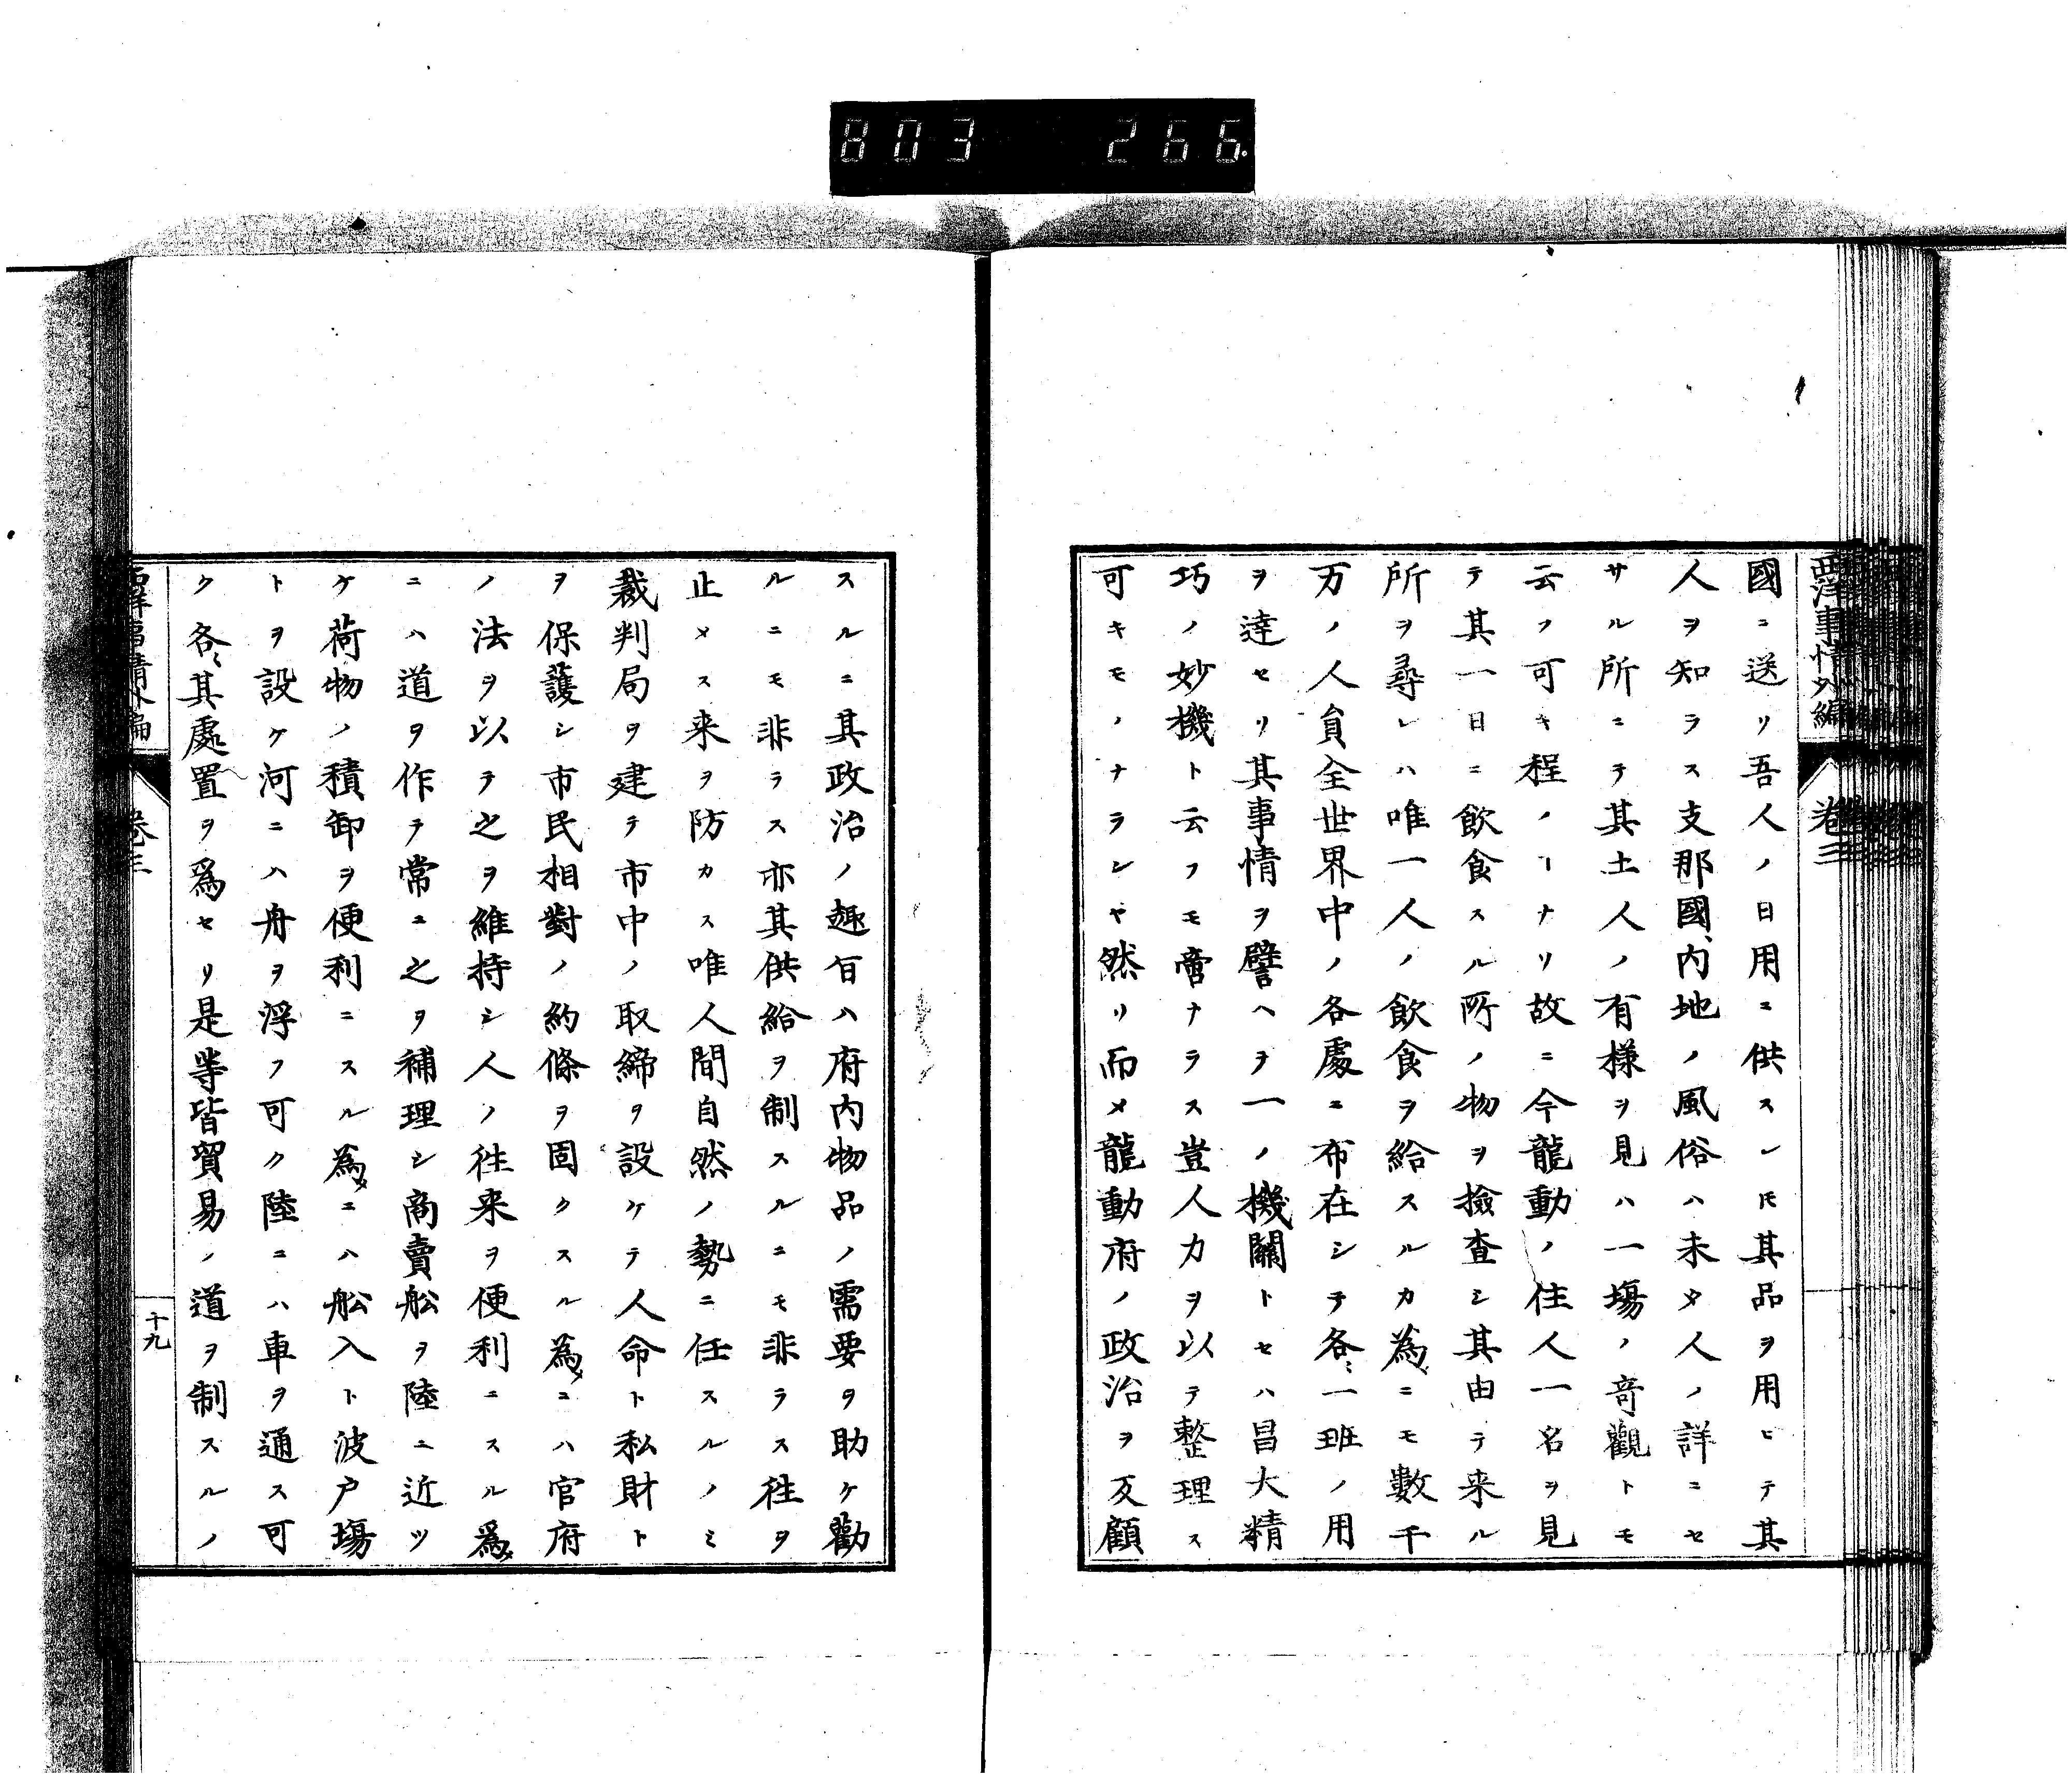 803 266
西洋事情外編
卷三
國ニ送リ吾人ノ日用ニ供スレ𪜈其品ヲ用ヒテ其
人ヲ知ラス支那國内地ノ風俗ハ未タ人ノ詳ニセ
サル所ニテ其土人ノ有様ヲ見ハ一塲ノ奇觀トモ
云フ可キ程ノヿナリ故ニ今龍動ノ住人一名ヲ見
テ其一日ニ飲食スル所ノ物ヲ撿查シ其由テ来ル
所ヲ尋レハ唯一人ノ飲食ヲ給スルカ為ニモ數千
万ノ人員全世界中ノ各處ニ布在シテ各〻一班ノ用
ヲ達セリ其事情ヲ譬ヘヲ一ノ機關トセハ昌大精
巧ノ妙機ト云フモ啻ナラス豈人力ヲ以テ整理ス
可キモノナランヤ然リ而メ龍動府ノ政治ヲ反顧
スルニ其政治ノ趣旨ハ府内物品ノ需要ヲ助ケ勸
ルニモ非ラス亦其供給ヲ制スルニモ非ラス往ヲ
止メス来ヲ防カス唯人間自然ノ勢ニ任スルノミ
裁判局ヲ建テ市中ノ取締ヲ設ケテ人命ト私財ト
ヲ保護シ市民相對ノ約條ヲ固クスル為メニハ官府
ノ法ヲ以テ之ヲ維持シ人ノ往来ヲ便利ニスル爲メ
ニハ道ヲ作テ常ニ之ヲ補理シ商賣舩ヲ陸ニ近ツ
ケ荷物ノ積卸ヲ便利ニスル為メニハ舩入ト波戸塲
トヲ設ケ河ニハ舟ヲ浮フ可ク陸ニハ車ヲ通ス可
ク各〻其處置ヲ爲セリ是等皆貿易ノ道ヲ制スルノ
西洋事情外編
卷三
十九